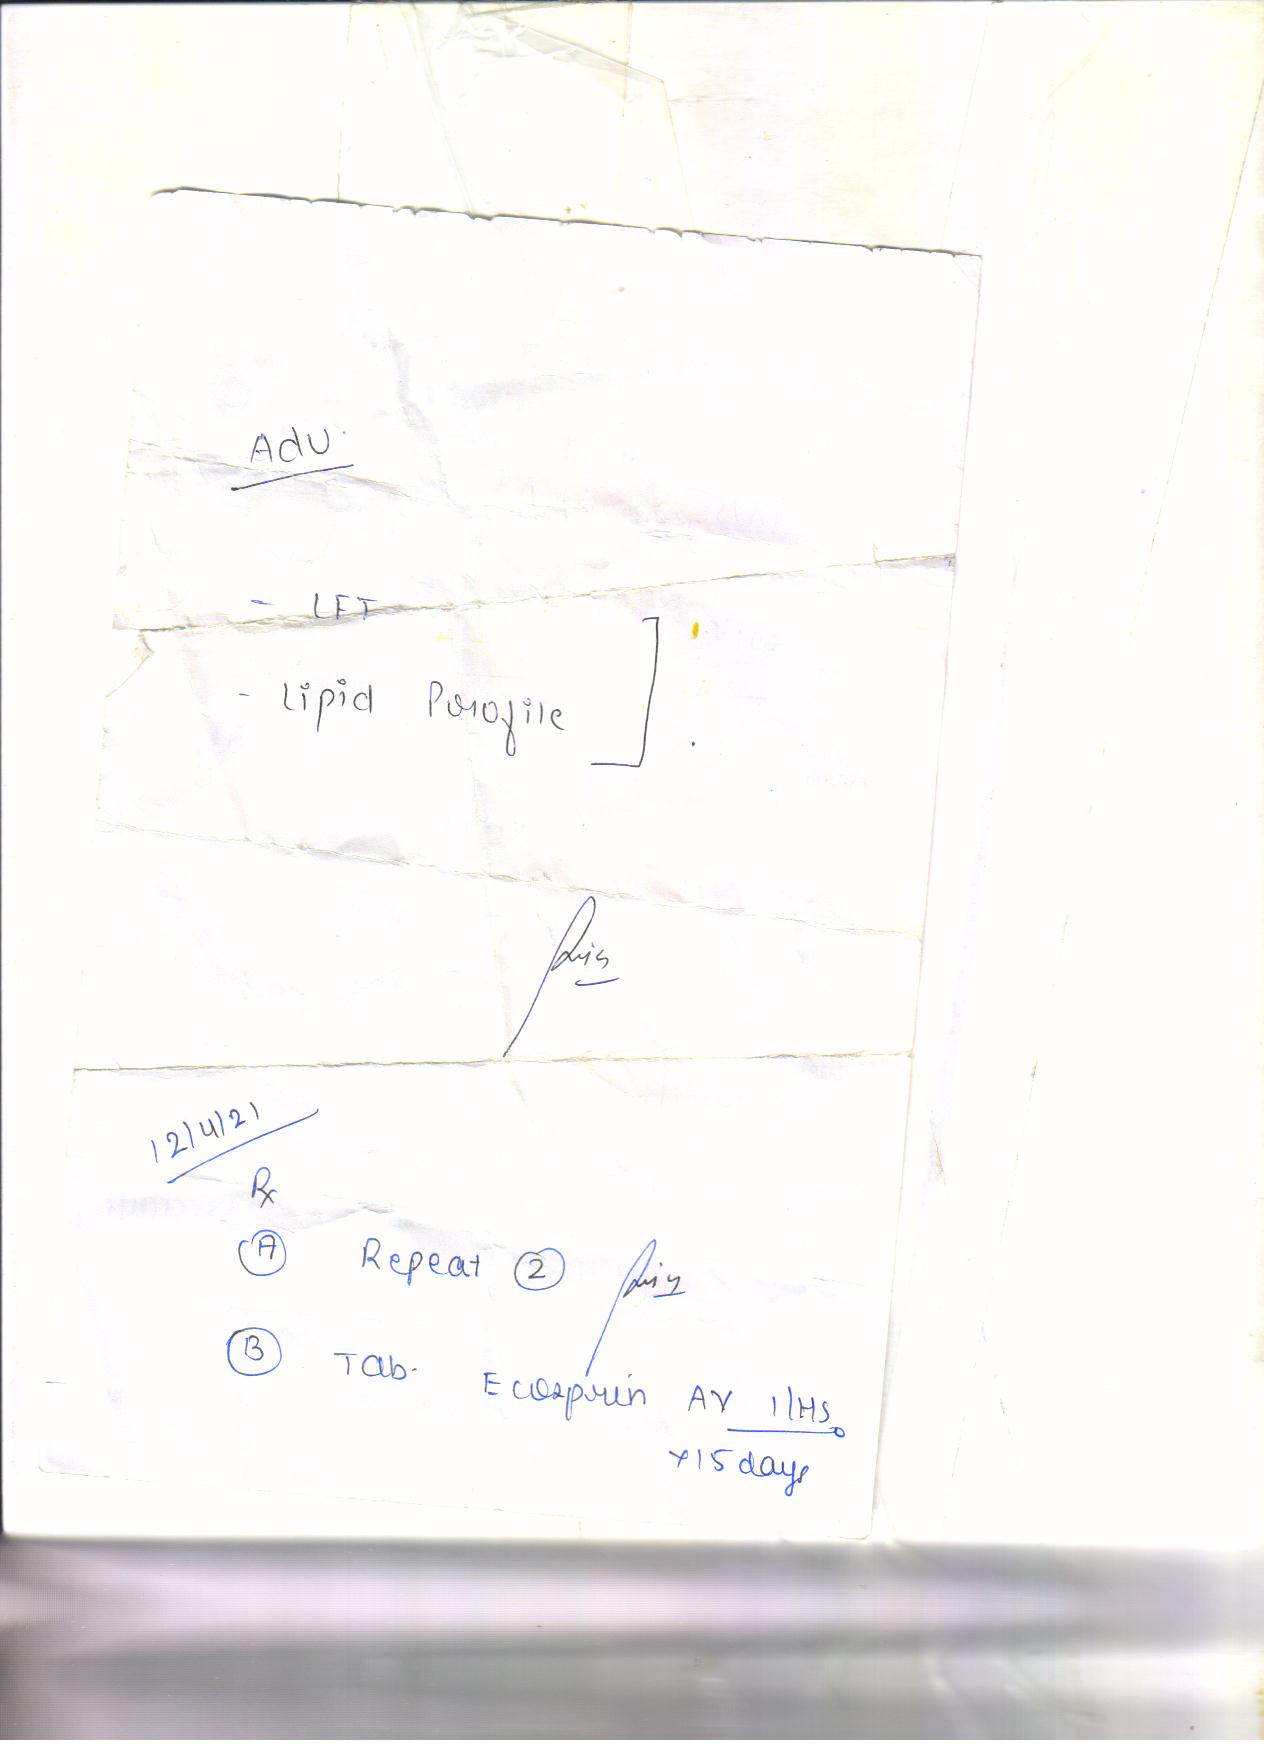 Adv.
- LFT
- Lipid Profile
12/4/21
Rx
A Repeat 2
B Tab. Ecosprin AV 1/HS
x15 days